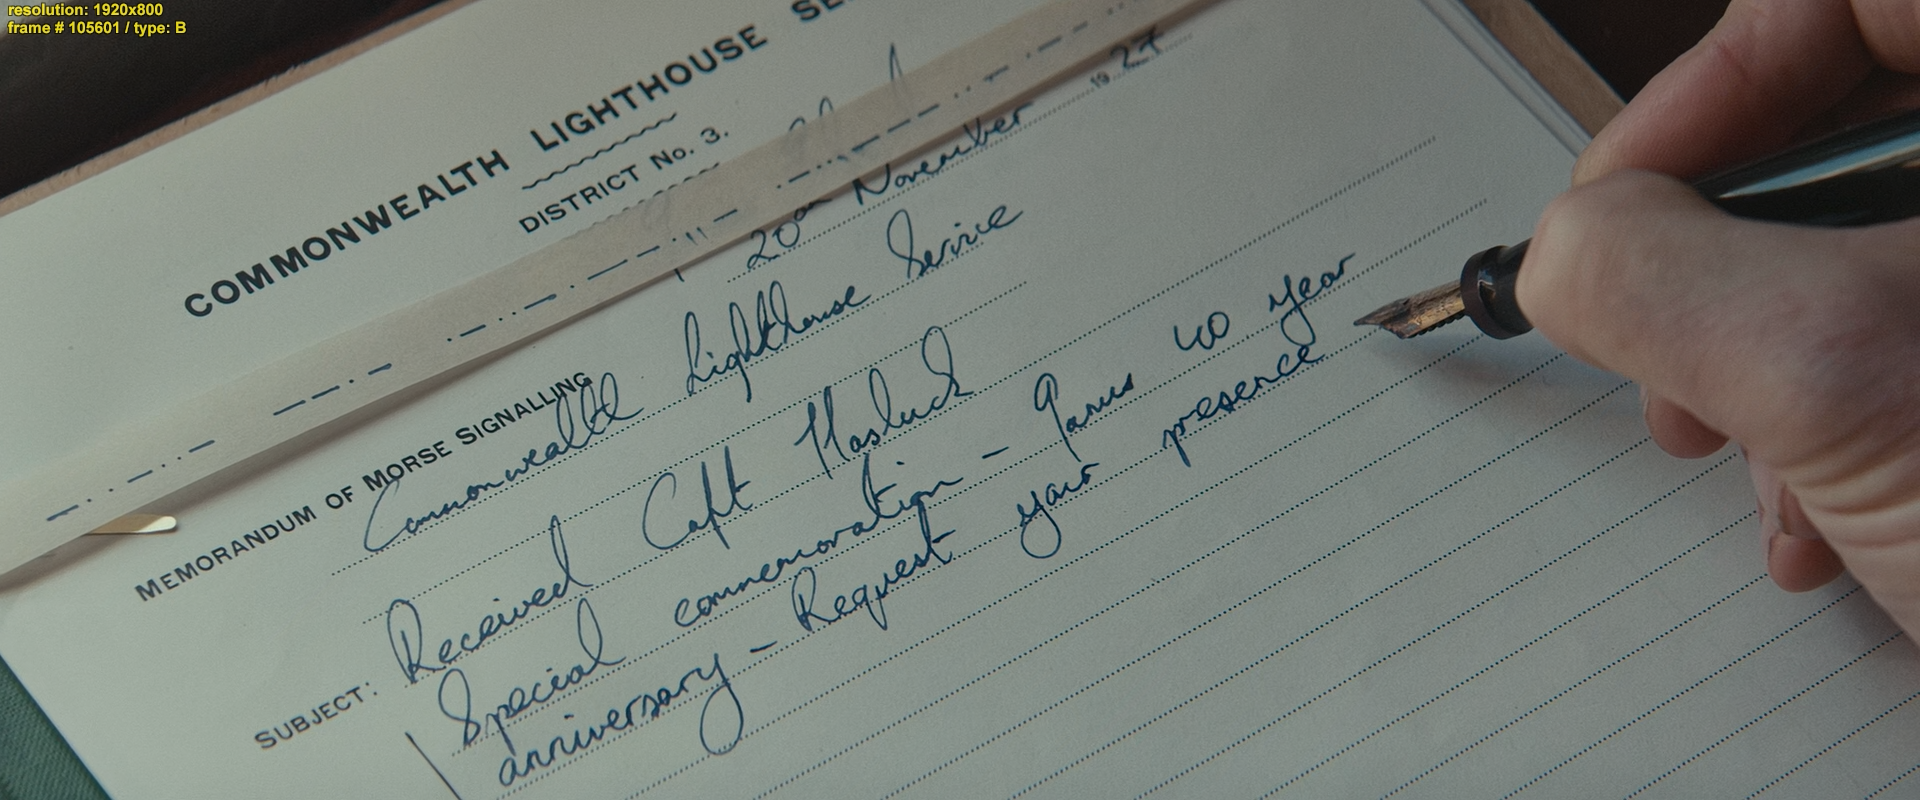 resolution: 1920x800
frame # 105601 / type: B
COMMONWEALTH LIGHTHOUSE SE
DISTRICT No. 3.
20th November 1927
MEMORANDUM OF MORSE SIGNALLING
Commonwealth Lighthouse Service
Received Capt Hasluck
SUBJECT: Special commemoration - Janus 40 year
anniversary - Request your presence